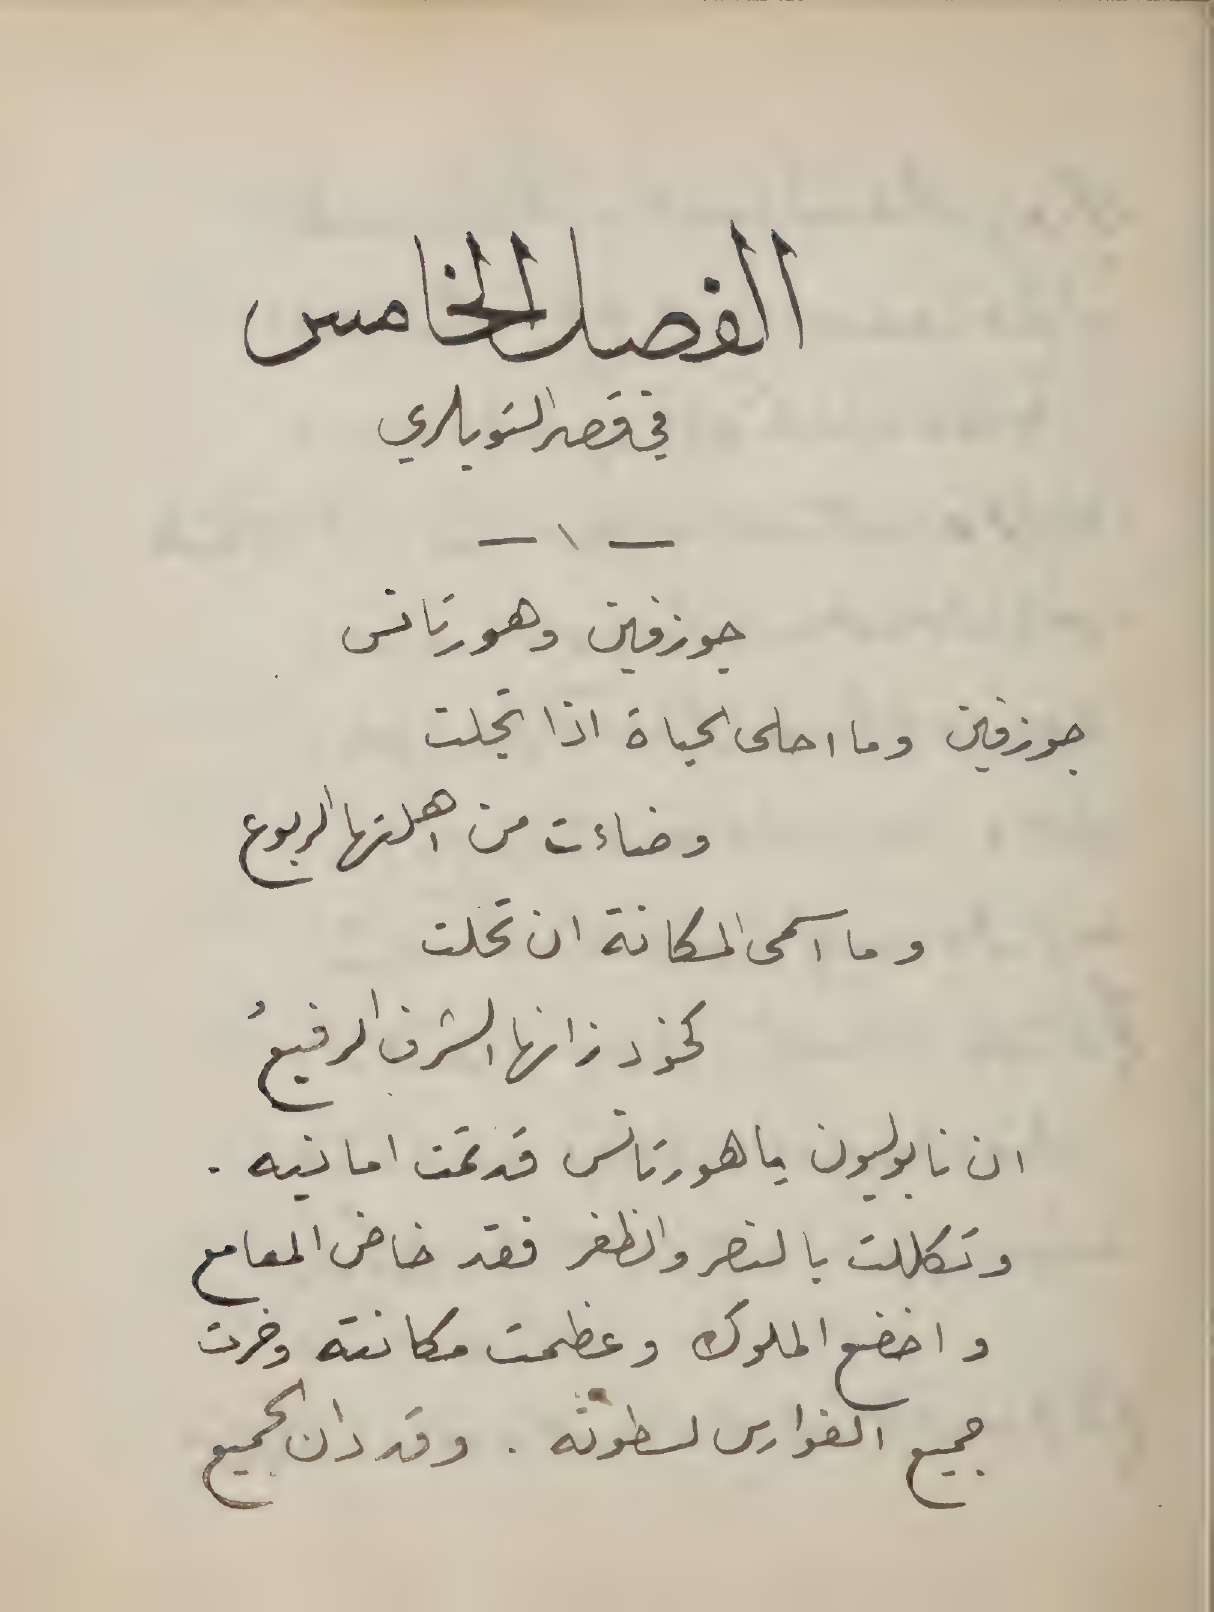 الفصل الخامس
في قصر التويلري
— ١ —
جوزفين وهورتانس
جوزفين وما احلى الحياة اذا تجلت
وضاءت من اهلتها الربوع
وما اسمى المكانة ان تحلت
كخود زانها الشرف الرفيعُ
ان نابوليون يا هورتانس قد تمت امانيه .
وتكللت بالنصر والظفر فقد خاض المعامع
واخضع الملوك وعظمت مكانته وخرت
جميع الفوارس لسطوته . وقد دان الجميع